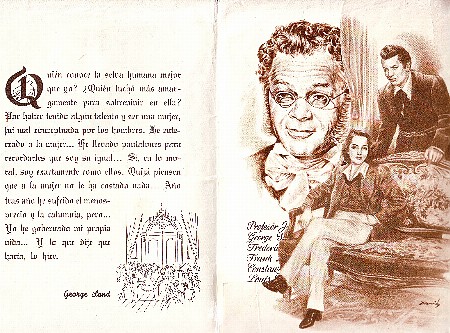 Quién conoce la selva humana mejor
que yo? ¿Quién luchó más amar-
gamente para sobrevivir en ella?
Por haber tenido algún talento y ser una mujer,
fui mal comprendida por los hombres. He
a la mujer... He llevado pantalones para
recordarles que soy su igual... Si, en lo mo-
ral, soy exactamente como ellos. Quizá piensen
que a la mujer no le ha costado nada... Año
tras año he sufrido el menos-
precio y la calumnia, pero...
Yo he gobernado mi propia
vida... Y lo que dije que
haría, lo hice.
George Sand
Profesor
George
Frederic
Frank
Constan
Louis